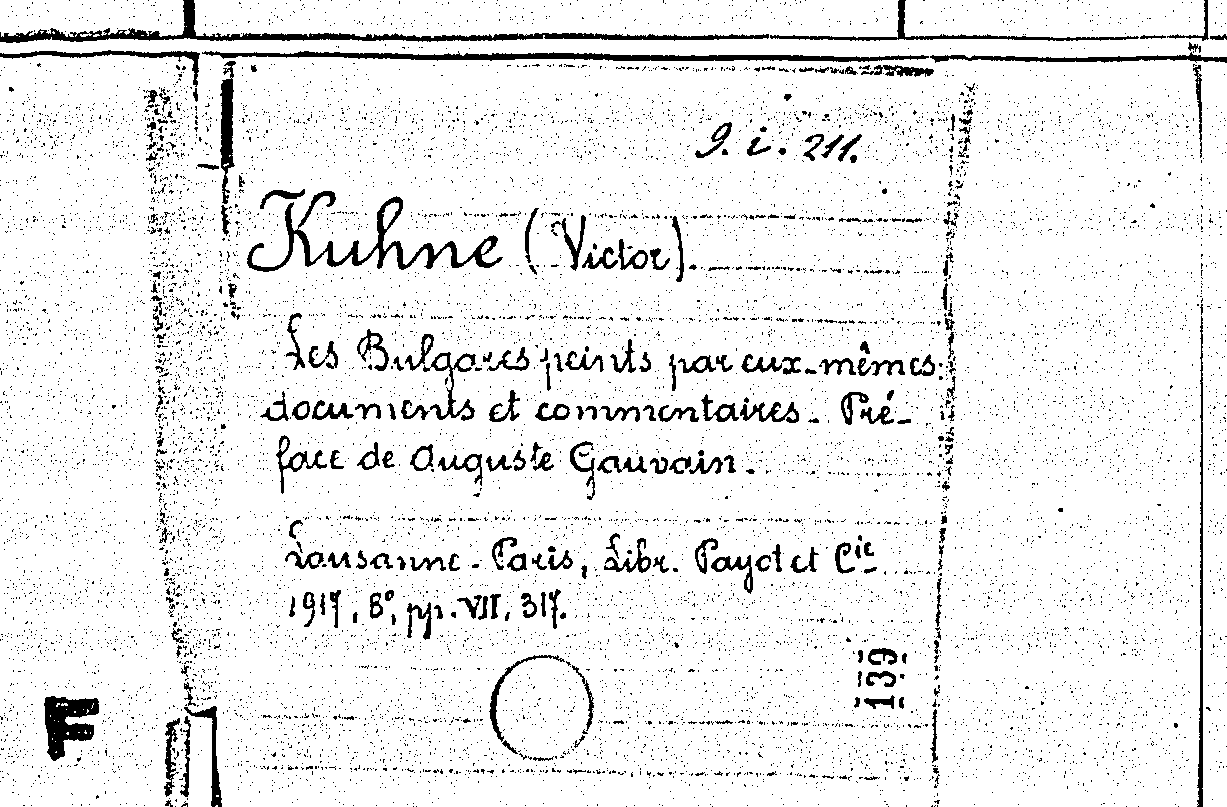 9. i. 211.
Kuhne (Victor).
Les Bulgares peints par eux-mêmes:
documents et commentaires. Pré-
face de Auguste Gauvain.
Lausanne - Paris, Libr. Payot et Cie
1917, 8°, pp. VII, 317.
139
F